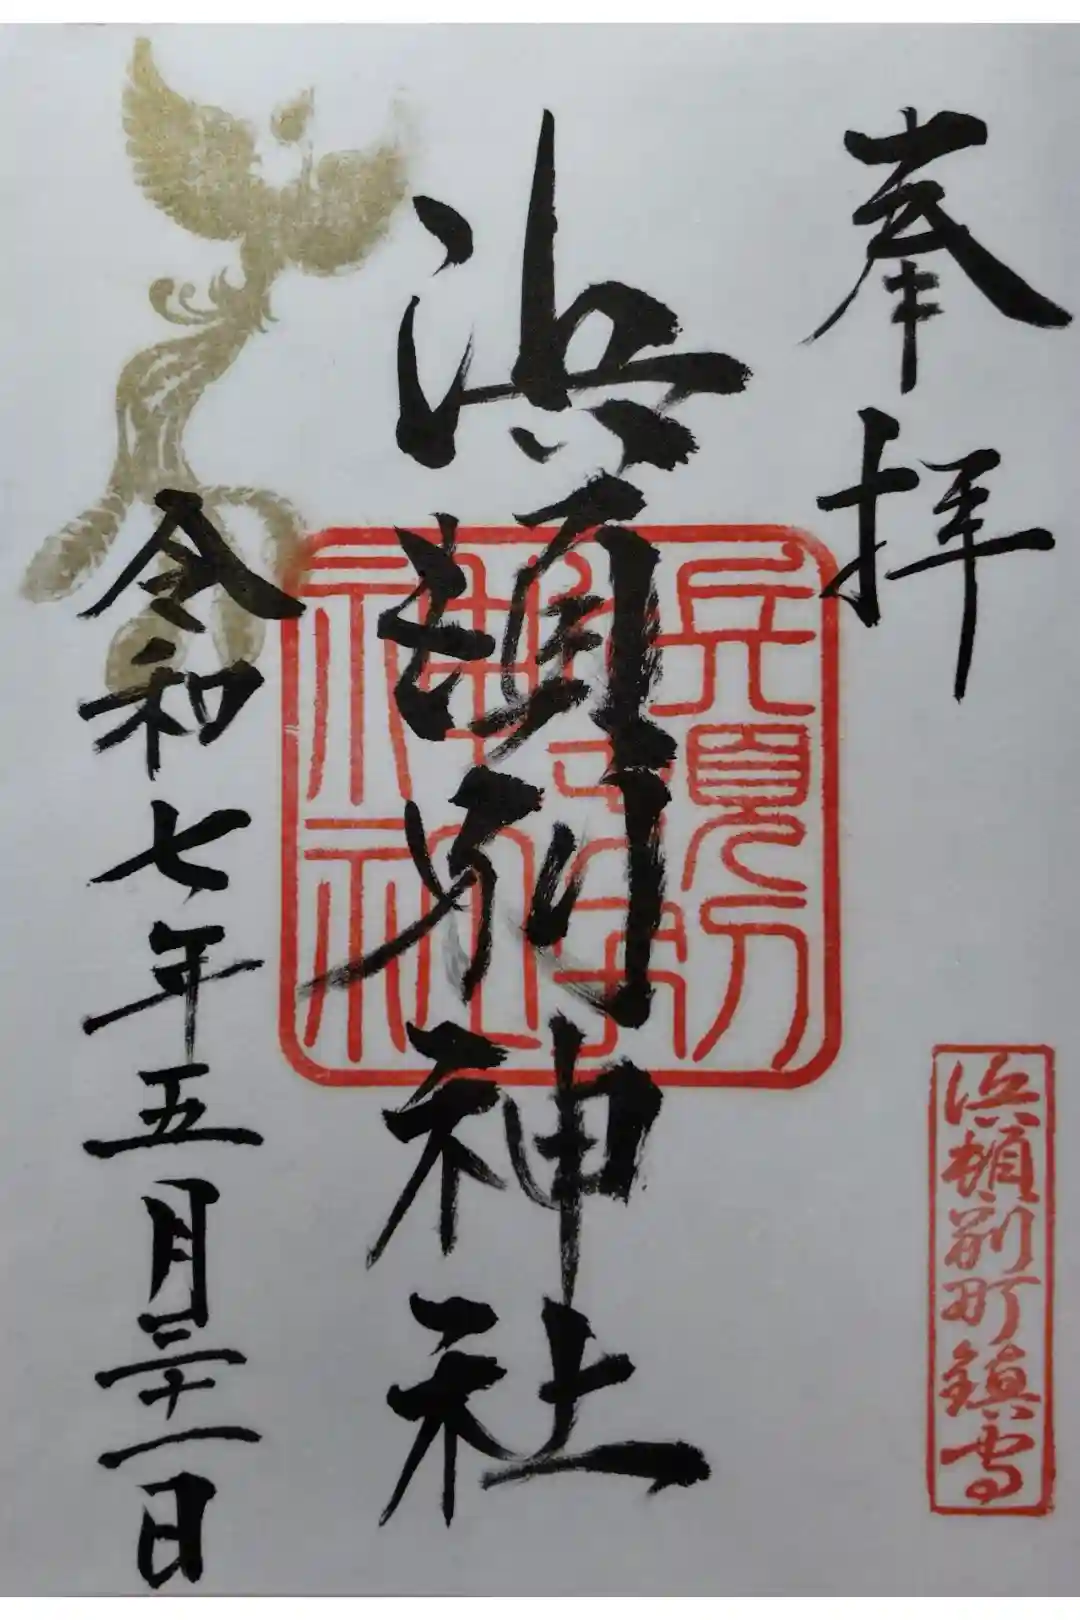 奉拝
浜頓別町鎮守
浜頓別神社
令和七年五月三十一日